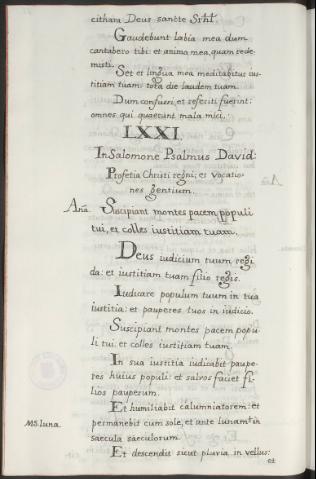 cithara Deus sancte Srhł.
Gaudebunt labia mea dum
cantabero tibi: et anima mea, quam rede-
misti.
Set et lingua mea meditabitur ius-
titiam tuam: tota die laudem tuam.
Dum confusi, et referiti fuerint:
omnes qui quaerunt mala mici.
LXXI.
In Salomone Psalmus David:
Profetia Christi regni; et vocatio-
nes gentium.
Añã. Suscipiant montes pacem populi
tui, et colles iustitiam tuam.
Deus iudicium tuum regi
da: et iustitiam tuam filio regis.
Iudicare populum tuum in tua
iustitia: et pauperes tuos in iudicio.
Suscipiant montes pacem popu-
li tui: et colles iustitiam tuam.
In sua iustitia iudicabit paupe-
res huius populi: et salvos faciet fi-
lios pauperum.
Et humiliabit calumniatorem: et
MS. luna. permanebit cum sole, et ante lunam in
saecula saeculorum.
Et descendit sicut pluvia in vellus:
et